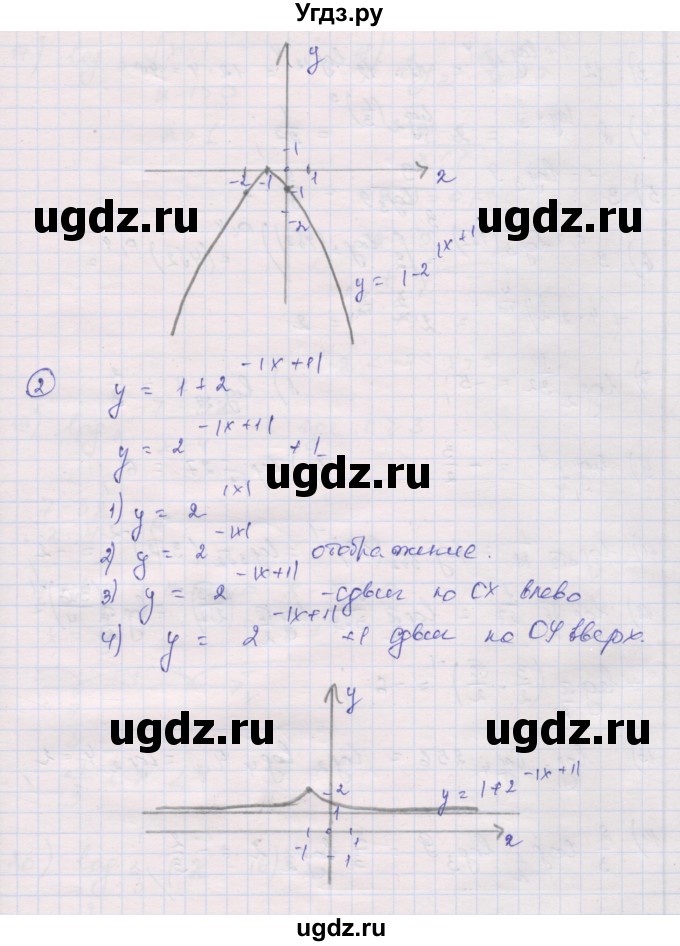 Угдз.ру
y
-1
-2 -1 1 x
-1
-2
y = 1-2^|x+1|
ugdz.ru ugdz.ru
② y = 1+2^-|x+1|
y = 2^-|x+1| +1
ugdz.ru
1) y = 2^|x|
2) y = 2^-|x| отображение.
3) y = 2^-|x+1| -сдвиг по OX влево
4) y = 2^-|x+1| +1 сдвиг по OY вверх.
y
ugdz.ru ugdz.ru
-2 y = 1+2^-|x+1|
1
-1 1 x
-1
ugdz.ru